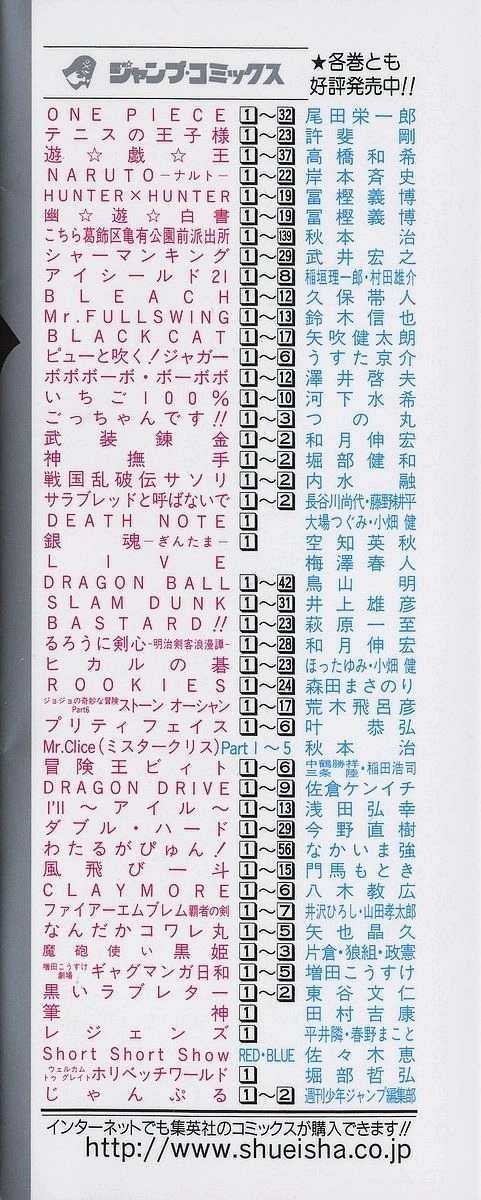 ジャンプ・コミックス
★各巻とも
好評発売中!!
ONE PIECE 1〜32 尾田栄一郎
テニスの王子様 1〜23 許斐 剛
遊☆戯☆王 1〜37 高橋和希
NARUTO—ナルト— 1〜22 岸本斉史
HUNTER×HUNTER 1〜19 冨樫義博
幽☆遊☆白書 1〜19 冨樫義博
こちら葛飾区亀有公園前派出所 1〜139 秋本 治
シャーマンキング 1〜29 武井宏之
アイシールド21 1〜8 稲垣理一郎・村田雄介
BLEACH 1〜12 久保帯人
Mr.FULLSWING 1〜13 鈴木信也
BLACK CAT 1〜17 矢吹健太朗
ピューと吹く!ジャガー 1〜6 うすた京介
ボボボーボ・ボーボボ 1〜12 澤井啓夫
いちご100% 1〜10 河下水希
ごっちゃんです!! 1〜3 つの丸
武装錬金 1〜2 和月伸宏
神撫手 1〜2 堀部健和
戦国乱破伝サソリ 1〜2 内水 融
サラブレッドと呼ばないで 1〜2 長谷川尚代・藤野耕平
DEATH NOTE 1 大場つぐみ・小畑 健
銀魂—ぎんたま— 1 空知英秋
LIVE 梅澤春人
DRAGON BALL 1〜42 鳥山 明
SLAM DUNK 1〜31 井上雄彦
BASTARD!! 1〜23 萩原一至
るろうに剣心-明治剣客浪漫譚- 1〜28 和月伸宏
ヒカルの碁 1〜23 ほったゆみ・小畑 健
ROOKIES 1〜24 森田まさのり
ジョジョの奇妙な冒険 Part6 ストーン オーシャン 1〜17 荒木飛呂彦
プリティフェイス 1〜6 叶 恭弘
Mr.Clice(ミスタークリス) Part 1〜5 秋本 治
冒険王ビィト 1〜6 三条 陸・稲田浩司
DRAGON DRIVE 1〜9 佐倉ケンイチ
I'll〜アイル〜 1〜13 浅田弘幸
ダブル・ハード 1〜29 今野直樹
わたるがぴゅん! 1〜56 なかいま強
風飛び一斗 1〜15 門馬もとき
CLAYMORE 1〜6 八木教広
ファイアーエムブレム覇者の剣 1〜7 井沢ひろし・山田孝太郎
なんだかコワレ丸 1〜5 矢也晶久
魔砲使い黒姫 1〜3 片倉・狼組・政憲
増田こうすけ劇場 ギャグマンガ日和 1〜5 増田こうすけ
黒いラブレター 1〜2 東谷文仁
筆神 1 田村吉康
レジェンズ 1 平井隣・春野まこと
Short Short Show RED・BLUE 佐々木恵
ウェルカム トゥ グレイト ホリベッチワールド 1 堀部哲弘
じゃんぷる 1〜2 週刊少年ジャンプ編集部
インターネットでも集英社のコミックスが購入できます!!
http://www.shueisha.co.jp